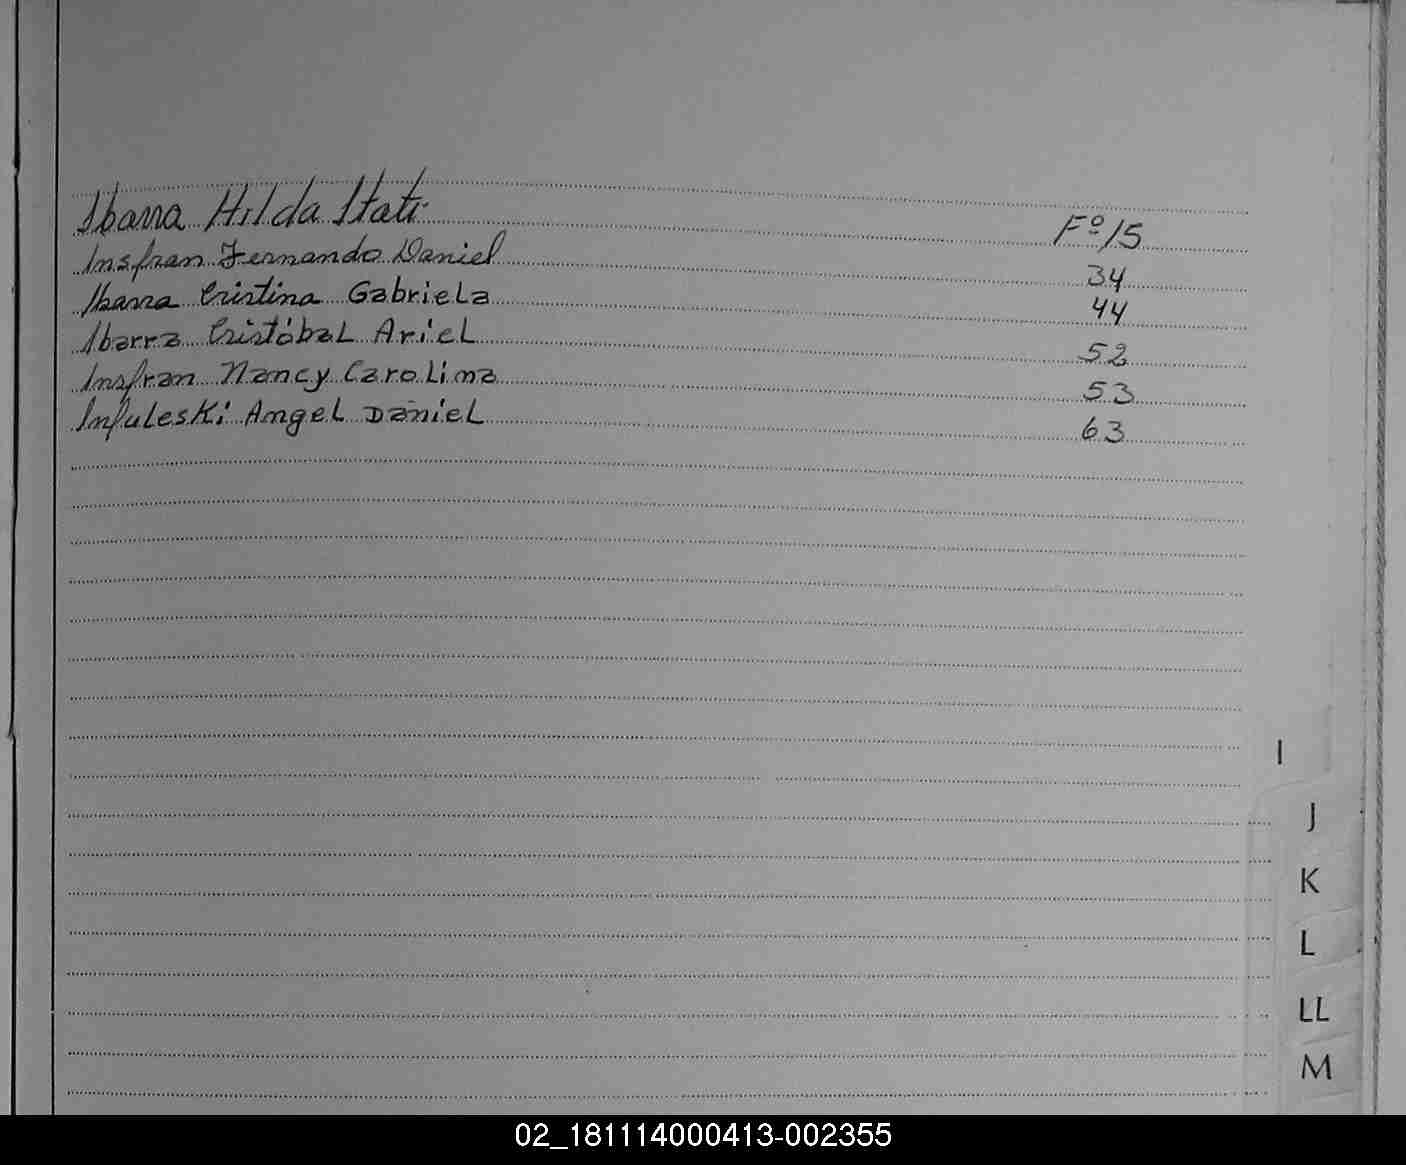 Ibarra Hilda Itati Fº 15
Insfran Fernando Daniel 34
Ibarra Cristina Gabriela 44
Ibarra Cristóbal Ariel 52
Insfran Nancy Carolina 53
Infuleski Angel Daniel 63
I
J
K
L
LL
M
02_181114000413-002355